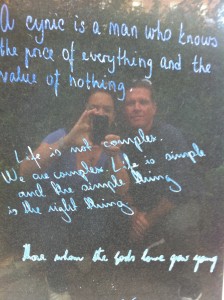 A cynic is a man who knows
the price of everything and the
value of nothing.
Life is not complex.
We are complex. Life is simple
and the simple thing
is the right thing
Those whom the gods love grow young